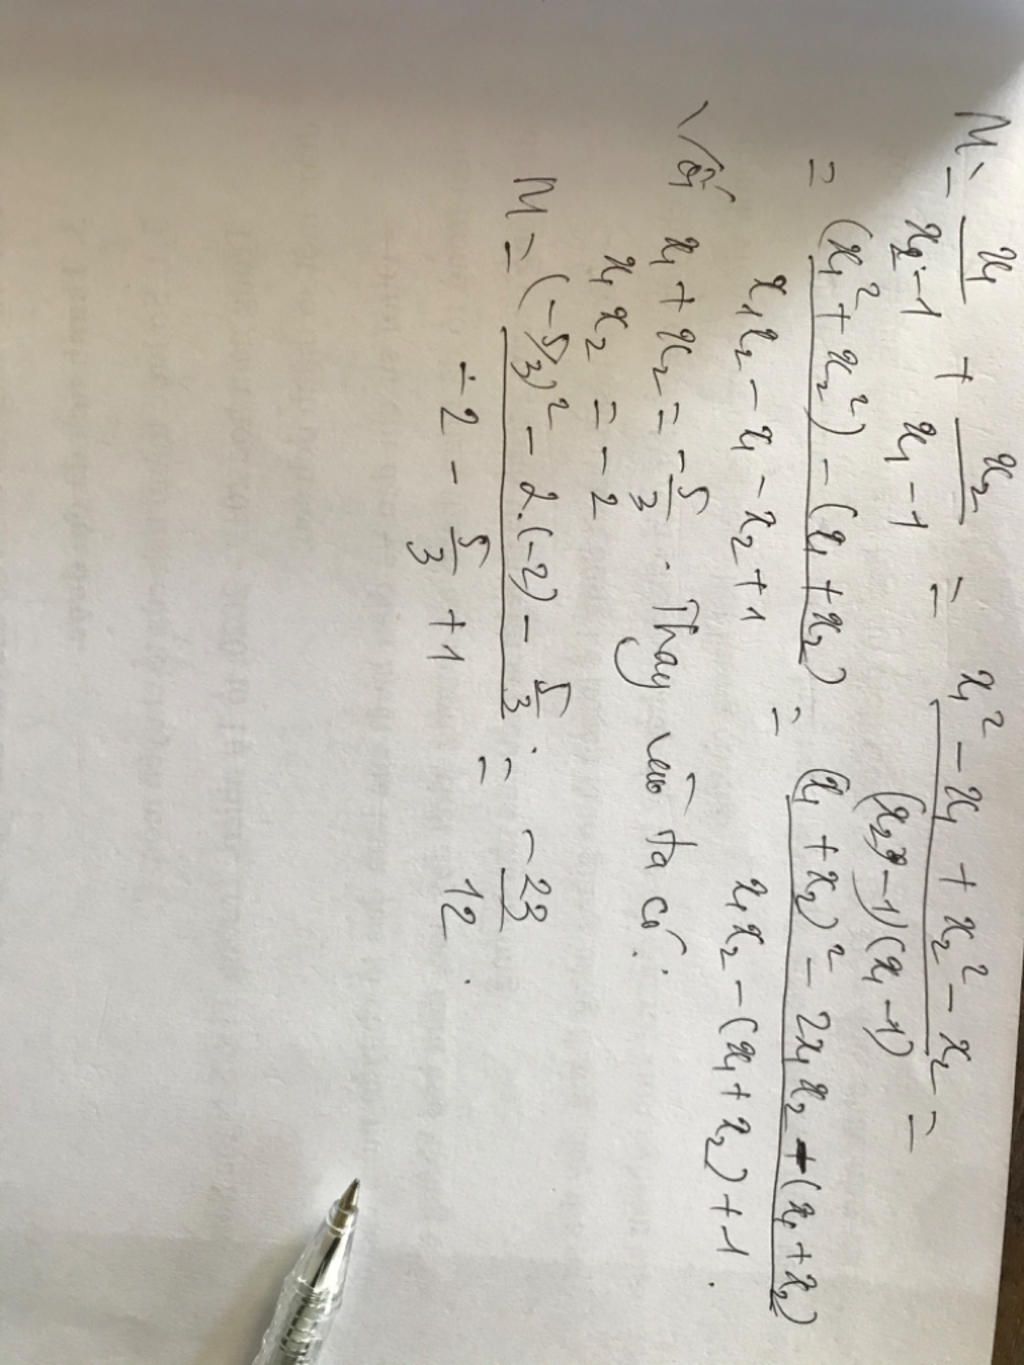 M = x₁/(x₂-1) + x₂/(x₁-1) = (x₁² - x₁ + x₂² - x₂)/((x₂-1)(x₁-1)) =
= ((x₁² + x₂²) - (x₁ + x₂))/(x₁x₂ - x₁ - x₂ + 1) = ((x₁ + x₂)² - 2x₁x₂ - (x₁ + x₂))/(x₁x₂ - (x₁ + x₂) + 1).
Với x₁ + x₂ = -5/3. Thay vào ta có:
x₁x₂ = -2
M = ((-5/3)² - 2.(-2) - 5/3)/(-2 - 5/3 + 1) = -23/12.